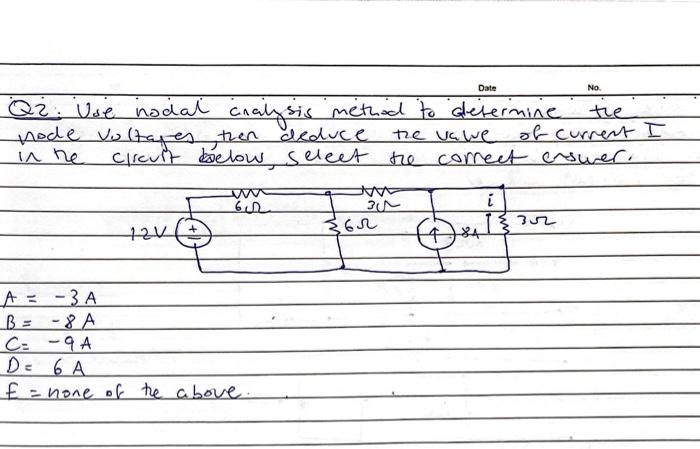 Date No.
Q2: Use nodal analysis method to determine the
node voltages, then deduce the value of current I
in the circuit below, select the correct answer.
6Ω 3Ω i
12V + 6Ω 8A 3Ω
A = -3 A
B = -8 A
C = -9 A
D = 6 A
E = none of the above.